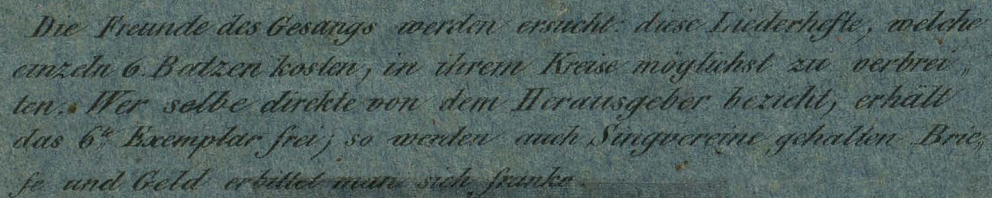 Die Freunde des Gesangs werden ersucht diese Liederhefte, welche
einzeln 6. Batzen kosten, in ihrem Kreise möglichst zu verbrei„
ten. Wer selbe direkte von dem Herausgeber bezieht, erhält
das 6te Exemplar frei; so werden auch Singvereine gehalten Brie„
fe und Geld erbittet man sich franko.